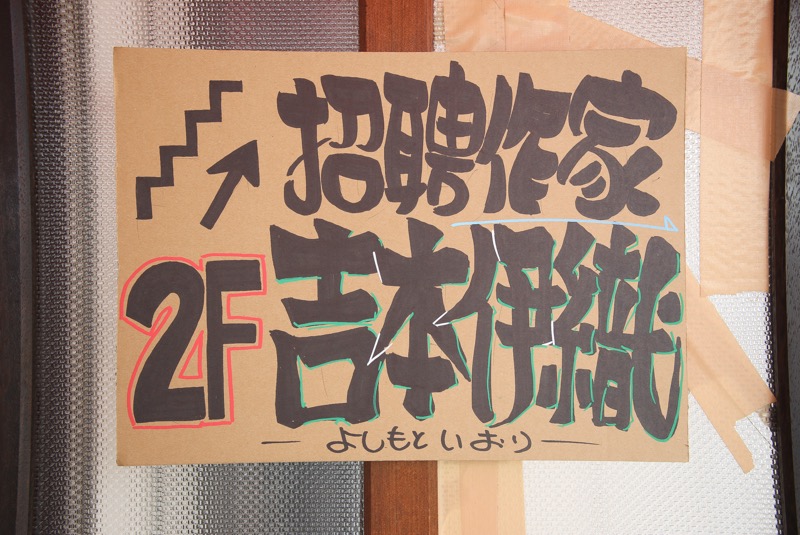 招聘作家
2F 吉本伊織
よしもといおり